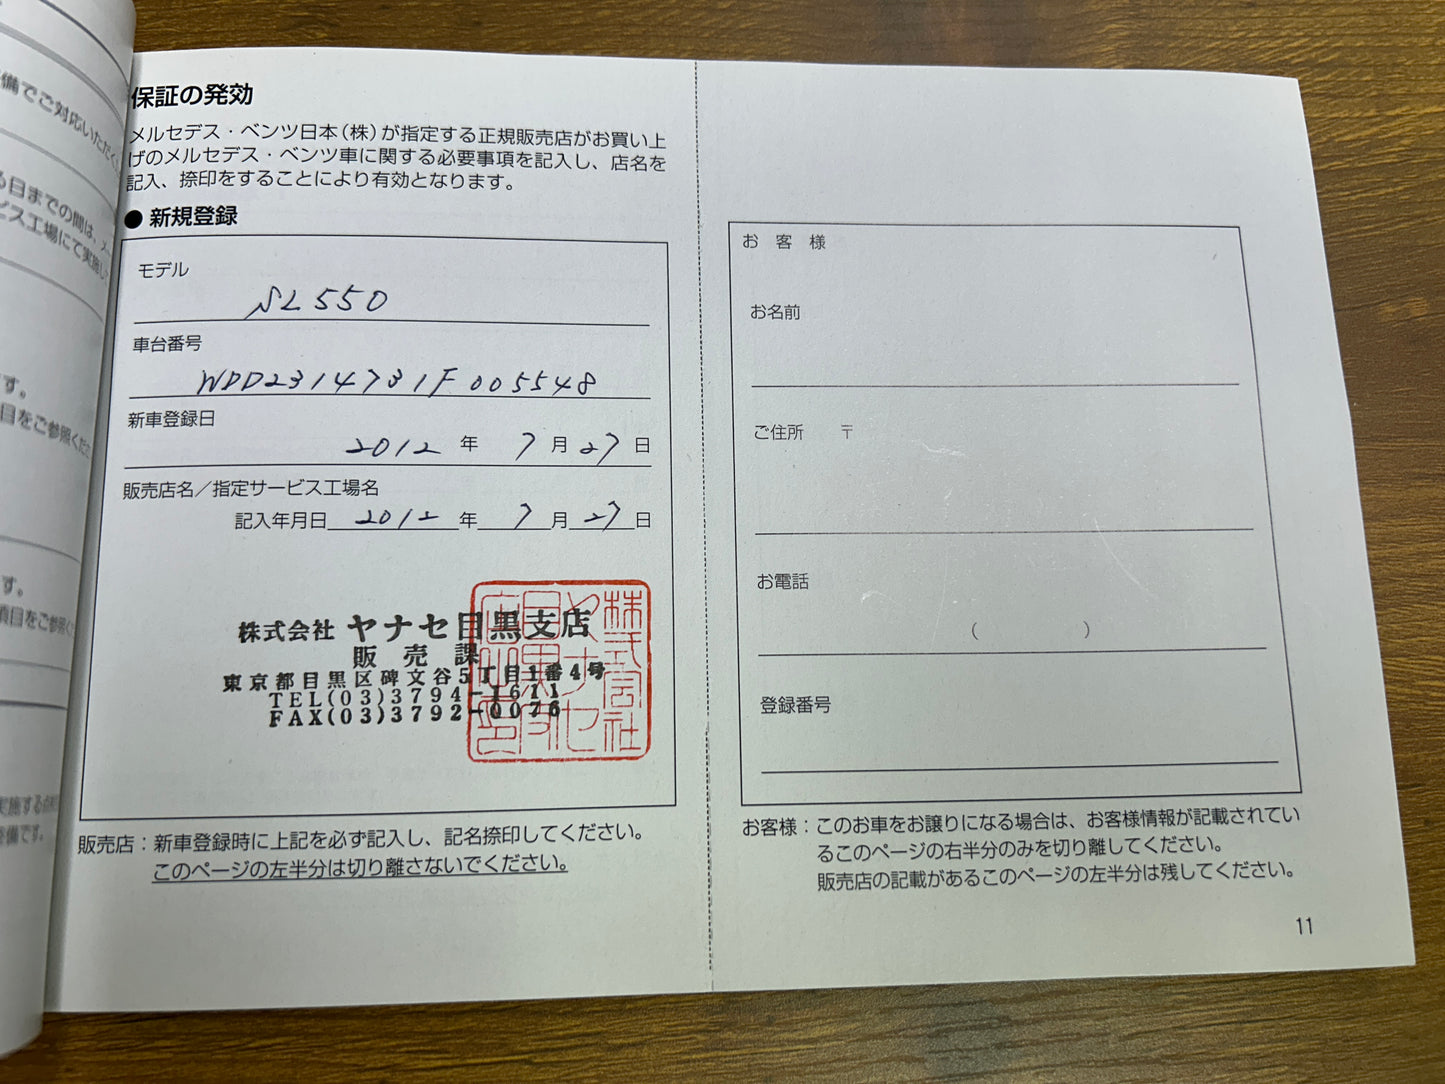 保証の発効
メルセデス・ベンツ日本(株)が指定する正規販売店がお買い上
げのメルセデス・ベンツ車に関する必要事項を記入し、店名を
記入、捺印をすることにより有効となります。
● 新規登録
モデル
SL550
車台番号
WDD2314731F005548
新車登録日
2012 年 7 月 27 日
販売店名／指定サービス工場名
記入年月日 2012 年 7 月 27 日
株式会社 ヤナセ目黒支店
販売課
東京都目黒区碑文谷5丁目1番4号
TEL(03)3794-1611
FAX(03)3792-0076
販売店：新車登録時に上記を必ず記入し、記名捺印してください。
このページの左半分は切り離さないでください。
お客様
お名前
ご住所 〒
お電話
( )
登録番号
お客様：このお車をお譲りになる場合は、お客様情報が記載されてい
るこのページの右半分のみを切り離してください。
販売店の記載があるこのページの左半分は残してください。
11
備でご対応いただく
る日までの間は、メ
ビス工場にて実施し
す。
目をご参照くだ
す。
項目をご参照く
実施する点
備です。